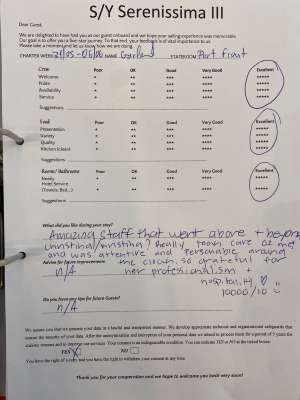 S/Y Serenissima III
Dear Guest,
We are delighted to have had you as our guest onboard and we hope your sailing experience was memorable.
Our goal is to offer you a five-star journey. To that end, your feedback is of vital importance to us.
Please take a moment to let us know how we are doing.
CHARTER WEEK NAME STATEROOM Port Front
Crew Poor OK Good Very Good Excellent
Welcome * ** *** **** *****
Polite * ** *** **** *****
Availability * ** *** **** *****
Service * ** *** **** *****
Suggestions
Food Poor OK Good Very Good Excellent
Presentation * ** *** **** *****
Variety * ** *** **** *****
Quality * ** *** **** *****
Kitchen Island * ** *** **** *****
Suggestions
Rooms/ Bathrooms Poor OK Good Very Good Excellent
Needy * ** *** **** *****
Hotel Service
(Towels, Bed...) * ** *** **** *****
Suggestions
What did you like during your stay?
Amazing staff that went above + beyond
christina/kristina? Really took care of me
and was attentive and personable around
Advice for future improvement me clean. So grateful for
n/a her professionalism +
hospitality ♡
10000/10
Do you have any tips for future Guests?
n/a
We assure you that we process your data in a lawful and transparent manner. We develop appropriate technical and organizational safeguards that
ensure the security of your data. After the anonymization and encryption of your personal data we intend to process them for a period of 5 years for
statistic reasons and to improve our services. Your consent is an indispensable condition. You can indicate YES or NO in the varied boxes.
YES NO
You have the right of access and you have the right to withdraw your consent at any time.
Thank you for your cooperation and we hope to welcome you back very soon!